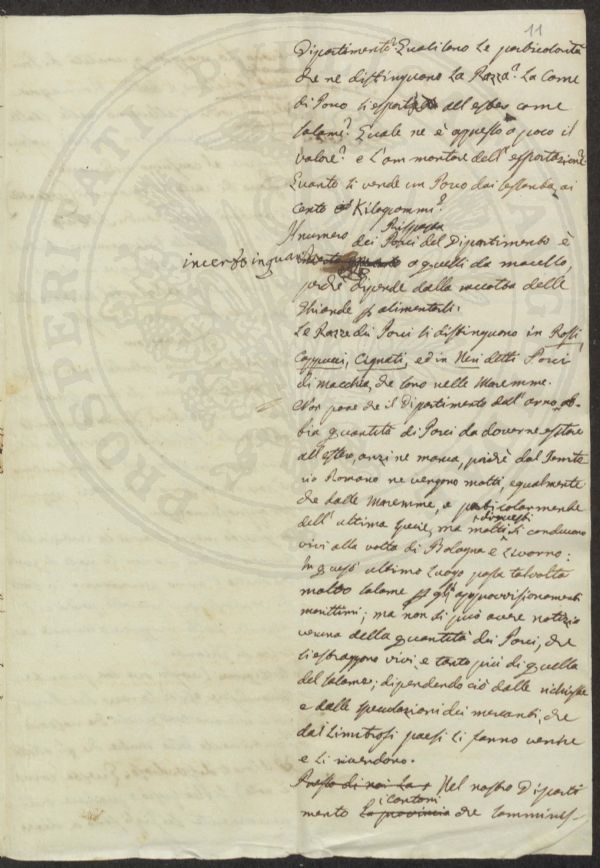 11
Dipartimento? Quali sono le particolarità
che ne distinguono la Razza? La Carne
di Porco si esporta all'estero come
salami? Quale ne è appresso a poco il
valore? e l'ammontare dell'esportazione?
Quanto si vende un Porco dai sessanta ai
cento Kilogrammi?
Risposta
Il numero dei Porci del Dipartimento è
incerto in quanto
a quelli da macello,
perché dipende dalla raccolta delle
Ghiande p alimentarli.
Le Razze dei Porci si distinguono in Rossi,
Cappucci, Cignati, ed in Neri detti Porci
di Macchia, che sono nelle Maremme.
Non pare che il Dipartimento dell'Arno, ab-
bia quantità di Porci da doverne estrarre
all'estero, anzi ne manca, poiché dal Territo
rio Romano ne vengono molti, egualmente
che dalle Maremme, e particolarmente
dell'ultima specie, ma molti di questi si conducono
vivi alla volta di Bologna e Livorno:
In quest'ultimo Luogo passa talvolta
molto salame p gli approvvisionamenti
marittimi; ma non si può avere notizia
veruna della quantità dei Porci, che
si estraggono vivi, e tanto più di quella
del salame; dipendendo ciò dalle richieste
e dalle speculazioni dei mercanti, che
dai Limitrofi paesi li fanno venire
e li rivendono.
Presso di noi La Nel nostro Diparti
mento La provincia i cantoni che somminis-